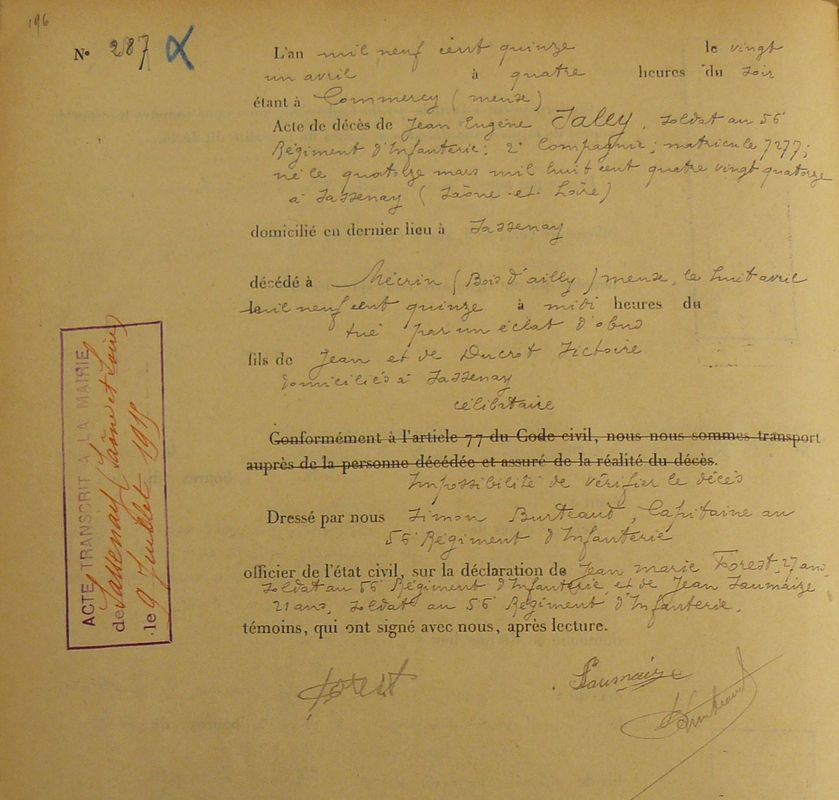 196
N° 287 α
L'an mil neuf cent quinze le vingt
un avril à quatre heures du soir
étant à Commercy (meuse)
Acte de décès de Jean Eugène Jally, soldat au 56e
Régiment d'Infanterie; 2e Compagnie; matricule 7277;
né le quatorze mars mil huit cent quatre vingt quatorze
à Sassenay (Saône-et-Loire)
domicilié en dernier lieu à Sassenay
décédé à Mécrin (Bois d'ailly) meuse, le huit avril
mil neuf cent quinze à midi heures du
tué par un éclat d'obus
fils de Jean et de Ducrot Victoire
domiciliés à Sassenay
célibataire
Conformément à l'article 77 du Code civil, nous nous sommes transport
auprès de la personne décédée et assuré de la réalité du décès.
Impossibilité de vérifier le décès
Dressé par nous Simon Burteaud, Capitaine au
56e Régiment d'Infanterie
officier de l'état civil, sur la déclaration de Jean marie Forest, 27 ans,
soldat au 56e Régiment d'Infanterie et de Jean Saumaize
21 ans, soldat au 56e Régiment d'Infanterie,
témoins, qui ont signé avec nous, après lecture.
Forest
Saumaize
Burteaud
ACTE TRANSCRIT A LA MAIRIE
de Sassenay (Saône et Loire)
le 9 Juillet 1915